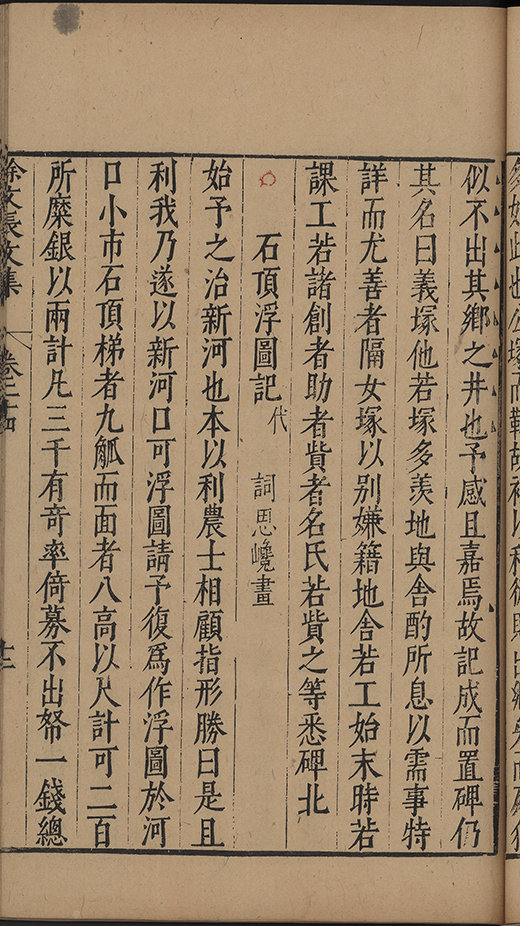 似不出其鄉之井也予感且嘉焉故記成而置碑仍
其名曰義塚他若塚多羨地與舎酌所息以需事特
詳而尤善者隔女塚以别嫌籍地舎若工始末時若
課工若諸創者助者貲者名氏若貲之等悉碑北
石頂浮圖記代 詞思巉畫
始予之治新河也本以利農士相顧指形勝曰是且
利我乃遂以新河口可浮圖請予復爲作浮圖於河
口小市石頂梯者九觚而面者八高以尺計可二百
所糜銀以兩計凡三千有奇率倚募不出帑一錢總
徐文長文集 卷二十四 十二